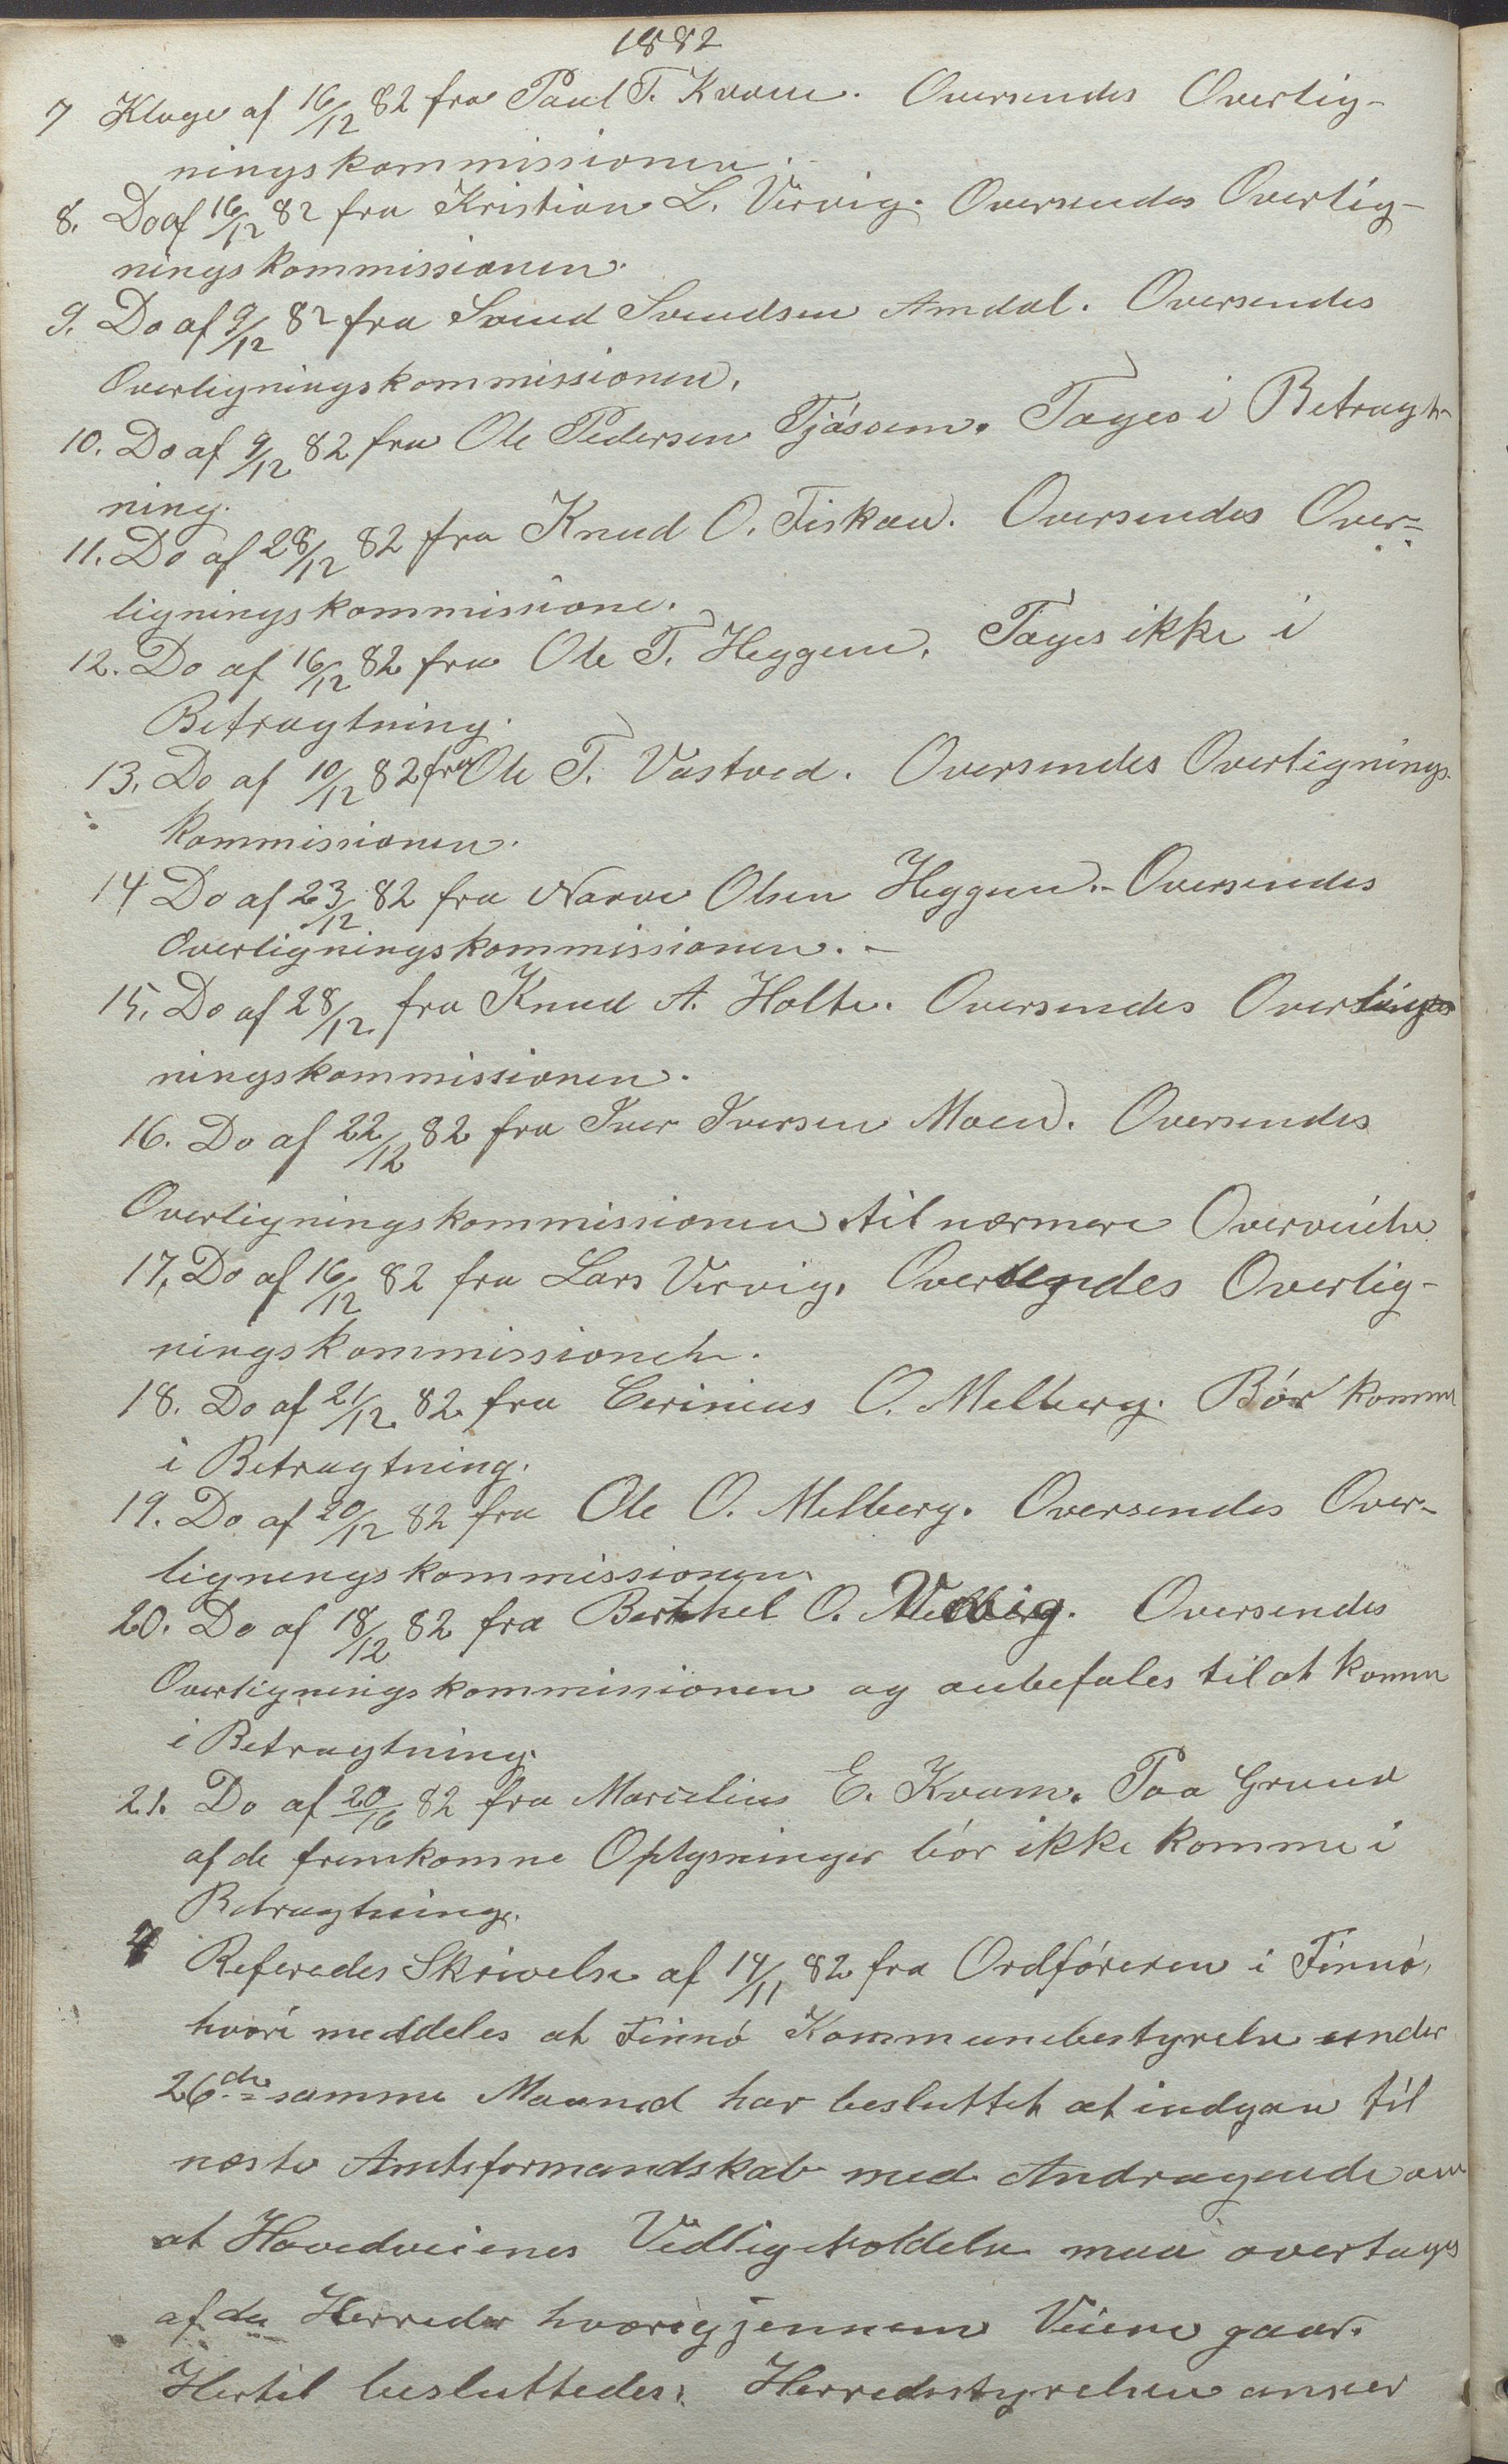 1882
7 Klage af 16/12 82 fra Paul T. Kvam. Oversendes Overlig-
ningskommissionen.
8. Do af 16/12 82 fra Kristian L. Virvig. Oversendes Overlig-
ningskommissionen.
9. Do af 9/12 82 fra Svend Svendsen Amdal. Oversendes
Overligningskommissionen.
10. Do af 9/12 82 fra Ole Pedersen Tjåsem. Tages i Betragt-
ning.
11. Do af 28/12 82 fra Knud O. Fiskaa. Oversendes Over-
ligningskommissione.
12. Do af 16/12 82 fra Ole T. Heggem. Tages ikke i
Betragtning.
13. Do af 10/12 82 fra Ole T. Vastved. Oversendes Overlignings-
kommissionen.
14 Do af 23/12 82 fra Narve Olsen Heggem. - Oversendes
Overligningskommissionen. -
15. Do af 28/12 fra Knud A. Holte. Oversendes Overlig
ningskommissionen.
16. Do af 22/12 82 fra Iver Iversen Moen. Oversendes
Overligningskommissionen til nærmere Overveielse
17. Do af 16/12 82 fra Lars Virvig. Oversendes Overlig-
ningskommissionen.
18. Do af 21/12 82 fra O. Melberg. Bör komme
i Betragtning.
19. Do af 20/12 82 fra Ole O. Melberg. Oversendes Over-
ligningskommissionen.
20. Do af 18/12 82 fra Berthel O. Oversendes
Overligningskommissionen og anbefales til at komme
i Betragtning.
21. Do af 20/6 82 fra Marselius E. Kvam. Paa Grund
af de fremkomne Oplysninger bör ikke komme i
Betragtning.
4 Referedes Skrivelse af 14/11 82 fra Ordföreren i Finnö,
hvori meddeles at Finnö Kommunebestyrelse under
26de samme Maaned har besluttet at indgaa til
næste Amtsformandskab med Andragende om
at Hovedveienes Vedligeholdelse maa overtages
af de Herreder hvorigjennem Veiene gaar.
Hertil besluttedes: Herredsstyrelsen anser